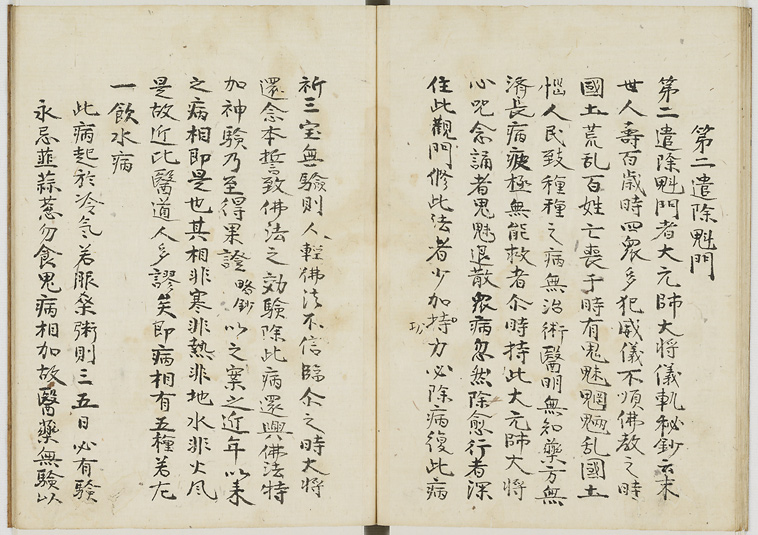 第二遣除魁門
第二遣除魁門者大元師大将儀軌秘鈔云末
世人壽百歳時四衆多犯威儀不順佛教之時
國土荒乱百姓亡喪于時有鬼魅魍魎乱國土
惱人民致種種之病無治術醫明無知藥方無
済長病疲極無能救者尒時持此大元師大将
心咒念誦者鬼魅退散衆病忽然除愈行者深
住此觀門修此法者少加持力必除病復此病
祈三宝無驗則人輕佛法不信臨尒之時大将
還念本誓致佛法之効驗除此病還興佛法特
加神驗乃至得果證略鈔以之案之近年以来
之病相即是也其相非寒非熱非地水非火風
是故近比醫道人多謬矣即病相有五種若左
一飲水病
此病起於冷気若服桑粥則三五日必有驗
永忌韮蒜葱勿食鬼病相加故醫藥無驗以